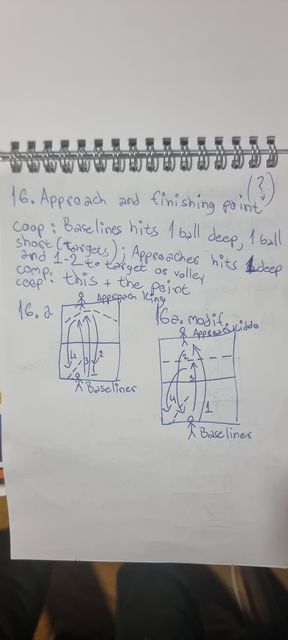 (?)
16. Approach and finishing point
coop: Baselines hits 1 ball deep, 1 ball
short (targets); Approaches hits 1 deep
and 1-2 to target or volley
comp.
coop: this + the point
16. a
Approach King
16a. modif.
4
3
1
2
Baseliner
2
3
4
1
Baseliner